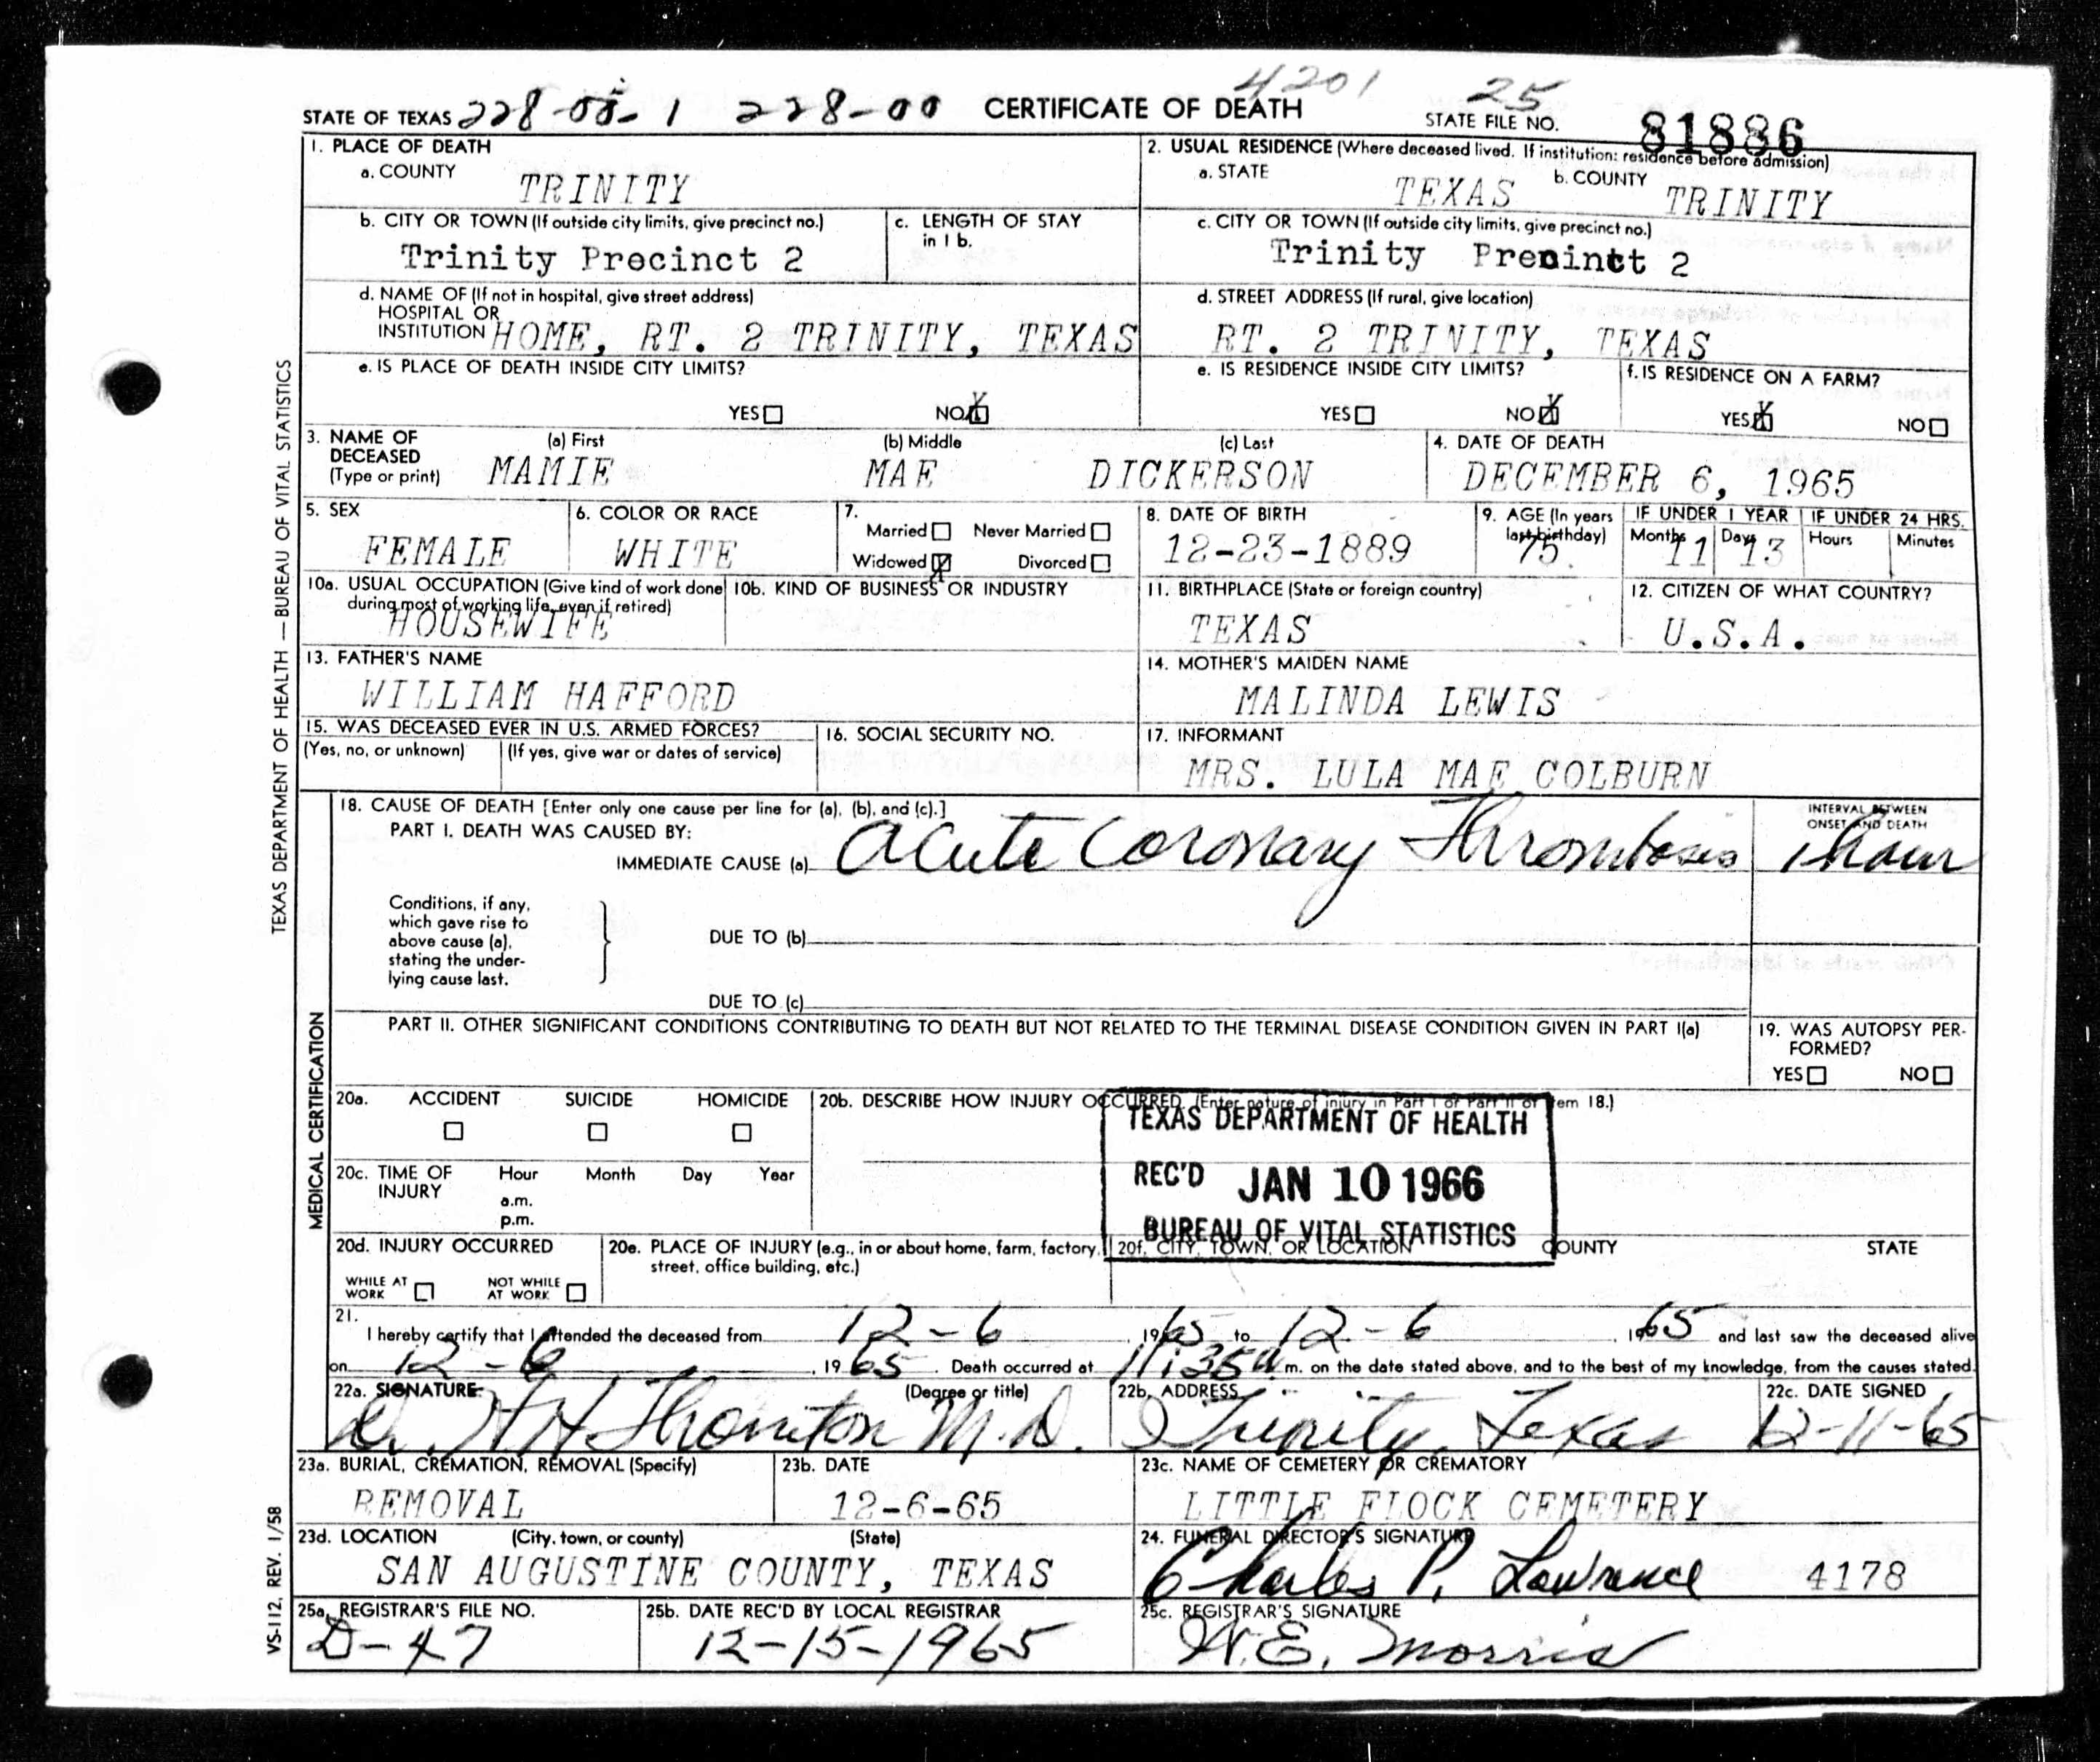 4201 25
STATE OF TEXAS 228-00-1 228-00 CERTIFICATE OF DEATH STATE FILE NO. 81886
1. PLACE OF DEATH
a. COUNTY
TRINITY
2. USUAL RESIDENCE (Where deceased lived. If institution: residence before admission)
a. STATE b. COUNTY
TEXAS TRINITY
b. CITY OR TOWN (If outside city limits, give precinct no.)
Trinity Precinct 2
c. LENGTH OF STAY
in 1 b.
c. CITY OR TOWN (If outside city limits, give precinct no.)
Trinity Precinct 2
d. NAME OF (If not in hospital, give street address)
HOSPITAL OR
INSTITUTION HOME, RT. 2 TRINITY, TEXAS
d. STREET ADDRESS (If rural, give location)
RT. 2 TRINITY, TEXAS
e. IS PLACE OF DEATH INSIDE CITY LIMITS?
YES NO X
e. IS RESIDENCE INSIDE CITY LIMITS?
YES NO X
f. IS RESIDENCE ON A FARM?
YES X NO
3. NAME OF
DECEASED
(Type or print)
(a) First (b) Middle (c) Last
MAMIE MAE DICKERSON
4. DATE OF DEATH
DECEMBER 6, 1965
5. SEX
FEMALE
6. COLOR OR RACE
WHITE
7.
Married Never Married
Widowed X Divorced
8. DATE OF BIRTH
12-23-1889
9. AGE (In years
last birthday)
75
IF UNDER 1 YEAR IF UNDER 24 HRS.
Months 11 Days 13 Hours Minutes
10a. USUAL OCCUPATION (Give kind of work done
during most of working life, even if retired)
HOUSEWIFE
10b. KIND OF BUSINESS OR INDUSTRY
11. BIRTHPLACE (State or foreign country)
TEXAS
12. CITIZEN OF WHAT COUNTRY?
U.S.A.
13. FATHER'S NAME
WILLIAM HAFFORD
14. MOTHER'S MAIDEN NAME
MALINDA LEWIS
15. WAS DECEASED EVER IN U.S. ARMED FORCES?
(Yes, no, or unknown) (If yes, give war or dates of service)
16. SOCIAL SECURITY NO.
17. INFORMANT
MRS. LULA MAE COLBURN
18. CAUSE OF DEATH [Enter only one cause per line for (a), (b), and (c).]
PART I. DEATH WAS CAUSED BY:
IMMEDIATE CAUSE (a) Acute Coronary Thrombosis
INTERVAL BETWEEN
ONSET AND DEATH
1 hour
Conditions, if any,
which gave rise to
above cause (a),
stating the under-
lying cause last.
DUE TO (b)
DUE TO (c)
PART II. OTHER SIGNIFICANT CONDITIONS CONTRIBUTING TO DEATH BUT NOT RELATED TO THE TERMINAL DISEASE CONDITION GIVEN IN PART I(a)
19. WAS AUTOPSY PER-
FORMED?
YES NO
20a. ACCIDENT SUICIDE HOMICIDE
20b. DESCRIBE HOW INJURY OCCURRED (Enter nature of injury in Part I or Part II of item 18.)
TEXAS DEPARTMENT OF HEALTH
REC'D JAN 10 1966
BUREAU OF VITAL STATISTICS
20c. TIME OF
INJURY
Hour Month Day Year
a.m.
p.m.
20d. INJURY OCCURRED
WHILE AT
WORK
NOT WHILE
AT WORK
20e. PLACE OF INJURY (e.g., in or about home, farm, factory,
street, office building, etc.)
20f. CITY, TOWN, OR LOCATION COUNTY STATE
21.
I hereby certify that I attended the deceased from 12-6, 1965 to 12-6, 1965 and last saw the deceased alive
on 12-6, 1965. Death occurred at 11:35 a.m. on the date stated above, and to the best of my knowledge, from the causes stated.
22a. SIGNATURE (Degree or title)
Dr. H H Thornton M.D.
22b. ADDRESS
Trinity, Texas
22c. DATE SIGNED
12-11-65
23a. BURIAL, CREMATION, REMOVAL (Specify)
REMOVAL
23b. DATE
12-6-65
23c. NAME OF CEMETERY OR CREMATORY
LITTLE FLOCK CEMETERY
23d. LOCATION (City, town, or county) (State)
SAN AUGUSTINE COUNTY, TEXAS
24. FUNERAL DIRECTOR'S SIGNATURE
Charles P. Lawrence 4178
25a. REGISTRAR'S FILE NO.
D-47
25b. DATE REC'D BY LOCAL REGISTRAR
12-15-1965
25c. REGISTRAR'S SIGNATURE
W.E. Morris
TEXAS DEPARTMENT OF HEALTH — BUREAU OF VITAL STATISTICS
MEDICAL CERTIFICATION
VS-112, REV. 1/58